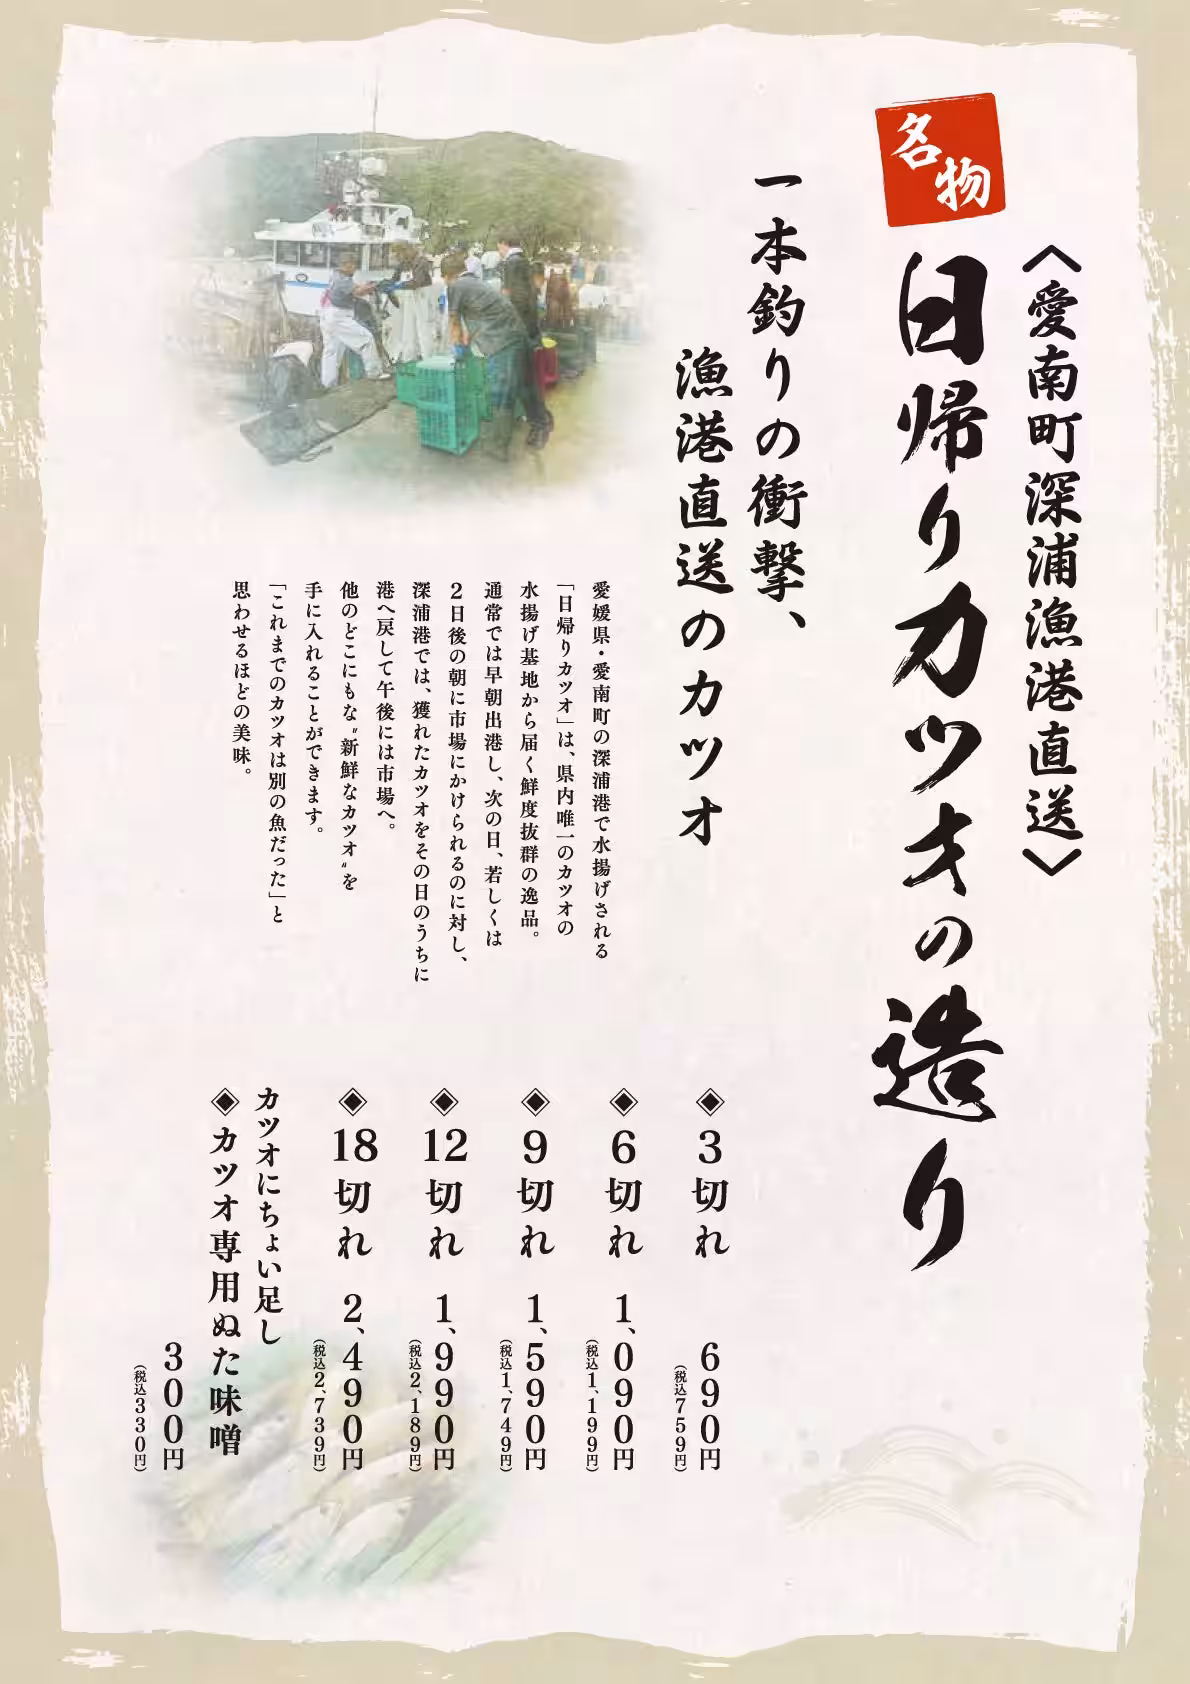 名物
〈愛南町深浦漁港直送〉
日帰りカツオの造り
一本釣りの衝撃、
漁港直送のカツオ
愛媛県・愛南町の深浦港で水揚げされる
「日帰りカツオ」は、県内唯一のカツオの
水揚げ基地から届く鮮度抜群の逸品。
通常では早朝出港し、次の日、若しくは
2日後の朝に市場にかけられるのに対し、
深浦港では、獲れたカツオをその日のうちに
港へ戻して午後には市場へ。
他のどこにもな〝新鮮なカツオ〟を
手に入れることができます。
「これまでのカツオは別の魚だった」と
思わせるほどの美味。
◈3切れ 690円
(税込759円)
◈6切れ 1,090円
(税込1,199円)
◈9切れ 1,590円
(税込1,749円)
◈12切れ 1,990円
(税込2,189円)
◈18切れ 2,490円
(税込2,739円)
カツオにちょい足し
◈カツオ専用ぬた味噌
300円
(税込330円)